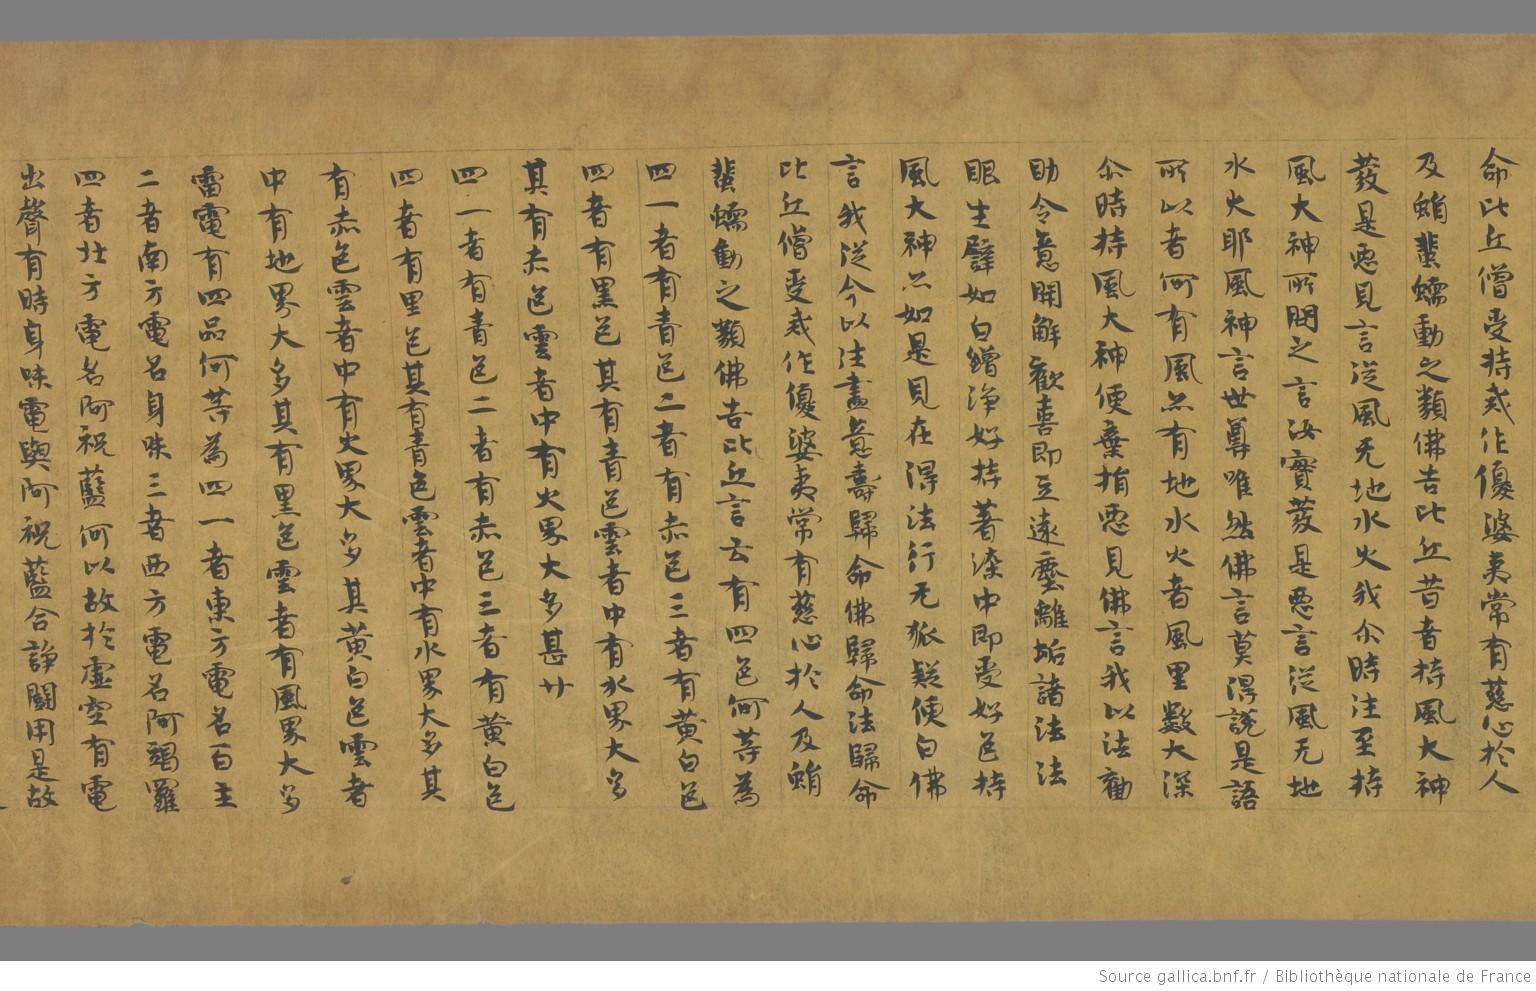 命比丘僧受持戒作優婆夷常有慈心於人
及蜎蜚蠕動之類佛告比丘昔者持風大神
發是惡見言從風无地水火我尒時往至持
風大神所問之言汝實發是惡言從風无地
水火耶風神言世尊唯然佛言莫得說是語
所以者何有風亦有地水火者風里數大深
尒時持風大神便棄捐惡見佛言我以法勸
助令意開解歡喜即立遠塵離垢諸法法
眼生譬如白繒淨好持著染中即受好色持
風大神亦如是見在得法行无狐疑便白佛
言我從今以往盡意壽歸命佛歸命法歸命
比丘僧受戒作優婆夷常有慈心於人及蜎
蜚蠕動之類佛告比丘言云有四色何等為
四一者有青色二者有赤色三者有黃白色
四者有黑色其有青色雲者中有水界大多
其有赤色雲者中有火界大多甚廿
四一者有青色二者有赤色三者有黃白色
四者有里色其有青色雲者中有水界大多其
有赤色雲者中有火界大多其黃白色雲者
中有地界大多其有黑色雲者有風界大多
雷電有四品何等為四一者東方電名百主
二者南方電名身味三者西方電名阿竭羅
四者北方電名阿祝藍何以故於虛空有電
出聲有時身味電與阿祝藍合諍鬪用是故
Source gallica.bnf.fr / Bibliothèque nationale de France